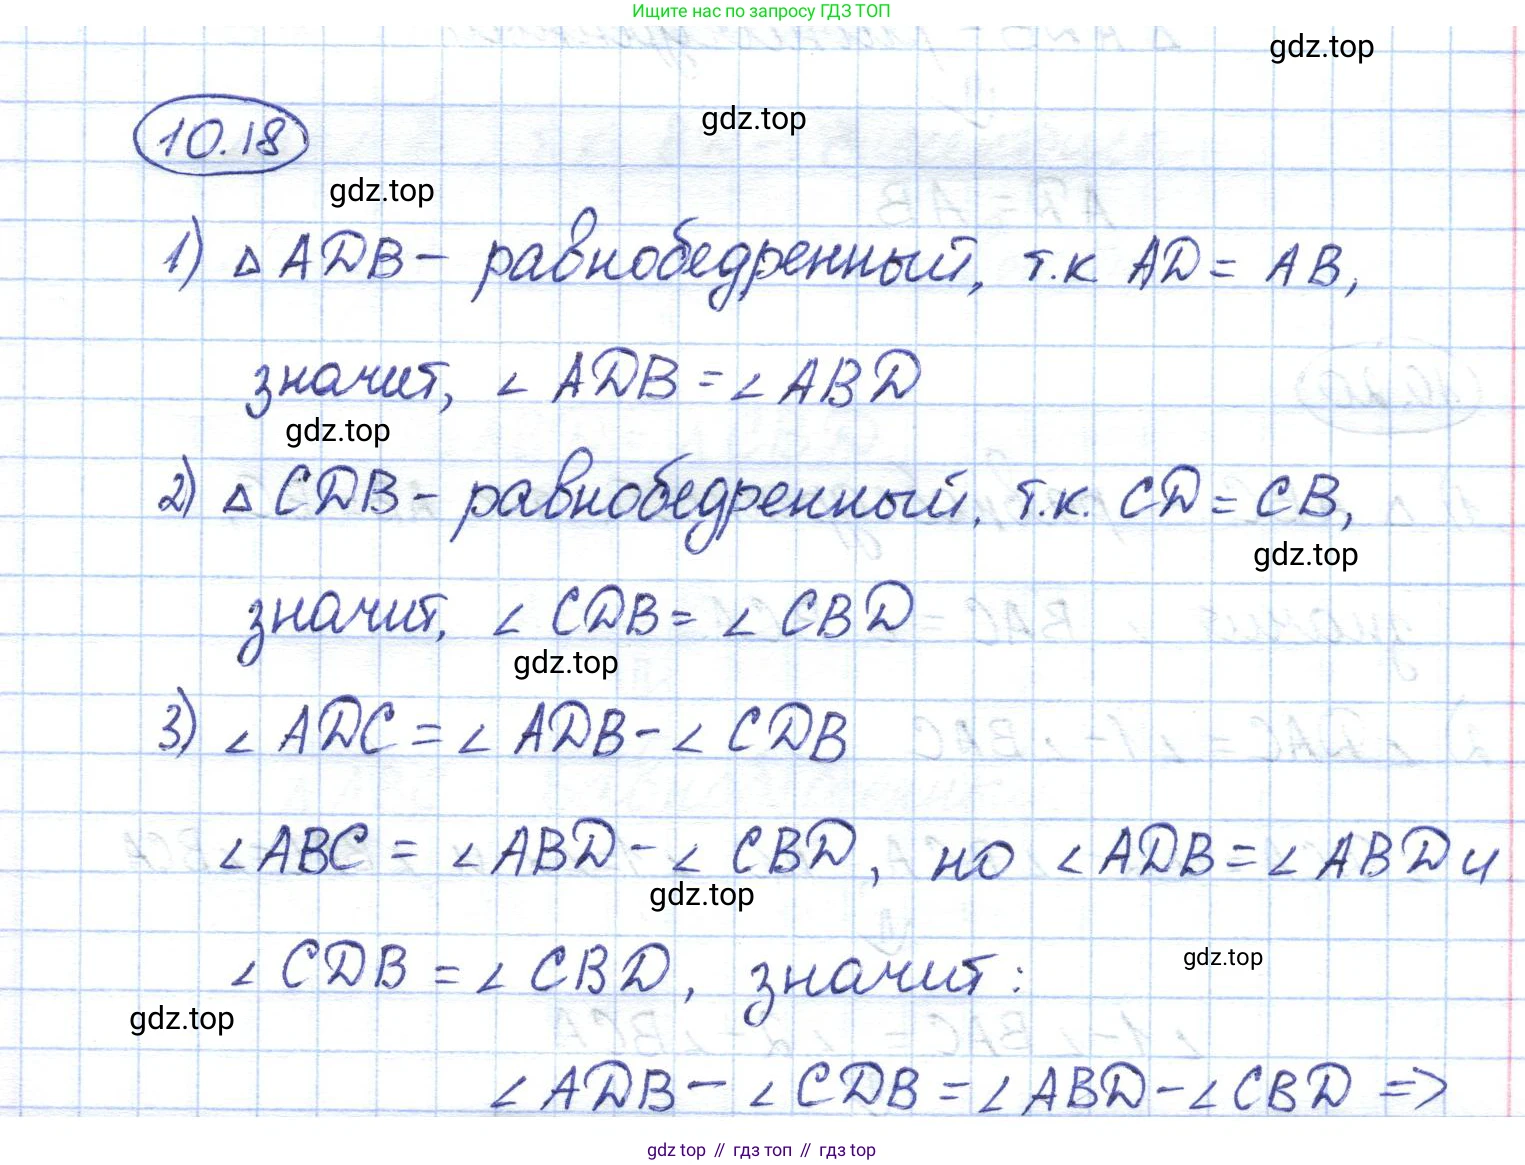 Ищите нас по запросу ГДЗ ТОП
gdz.top
gdz.top
10.18
gdz.top
1) △ ADB - равнобедренный, т.к AD = AB,
значит, ∠ ADB = ∠ ABD
gdz.top
2) △ CDB - равнобедренный, т.к. CD = CB,
gdz.top
значит, ∠ CDB = ∠ CBD
gdz.top
3) ∠ ADC = ∠ ADB - ∠ CDB
∠ ABC = ∠ ABD - ∠ CBD, но ∠ ADB = ∠ ABD и
gdz.top
∠ CDB = ∠ CBD, значит:
gdz.top
gdz.top
∠ ADB - ∠ CDB = ∠ ABD - ∠ CBD =>
gdz.top // гдз топ // гдз top